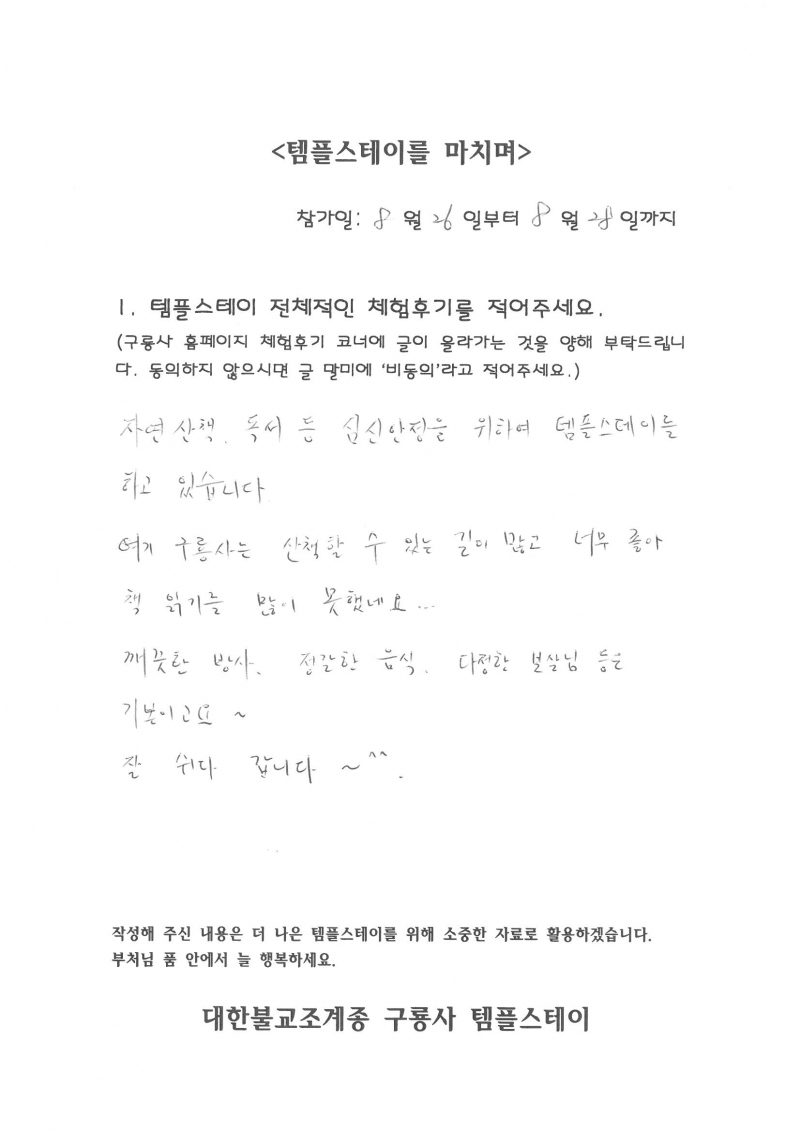 <템플스테이를 마치며>
참가일: 8 월 26 일부터 8 월 28 일까지
1. 템플스테이 전체적인 체험후기를 적어주세요.
(구룡사 홈페이지 체험후기 코너에 글이 올라가는 것을 양해 부탁드립니
다. 동의하지 않으시면 글 말미에 '비동의'라고 적어주세요.)
자연 산책, 독서 등 심신안정을 위하여 템플스테이를
하고 있습니다
여기 구룡사는 산책할 수 있는 길이 많고 너무 좋아
책 읽기를 많이 못했네요...
깨끗한 방사, 정갈한 음식, 다정한 보살님 등은
기본이고요 ~
잘 쉬다 갑니다 ~^^.
작성해 주신 내용은 더 나은 템플스테이를 위해 소중한 자료로 활용하겠습니다.
부처님 품 안에서 늘 행복하세요.
대한불교조계종 구룡사 템플스테이